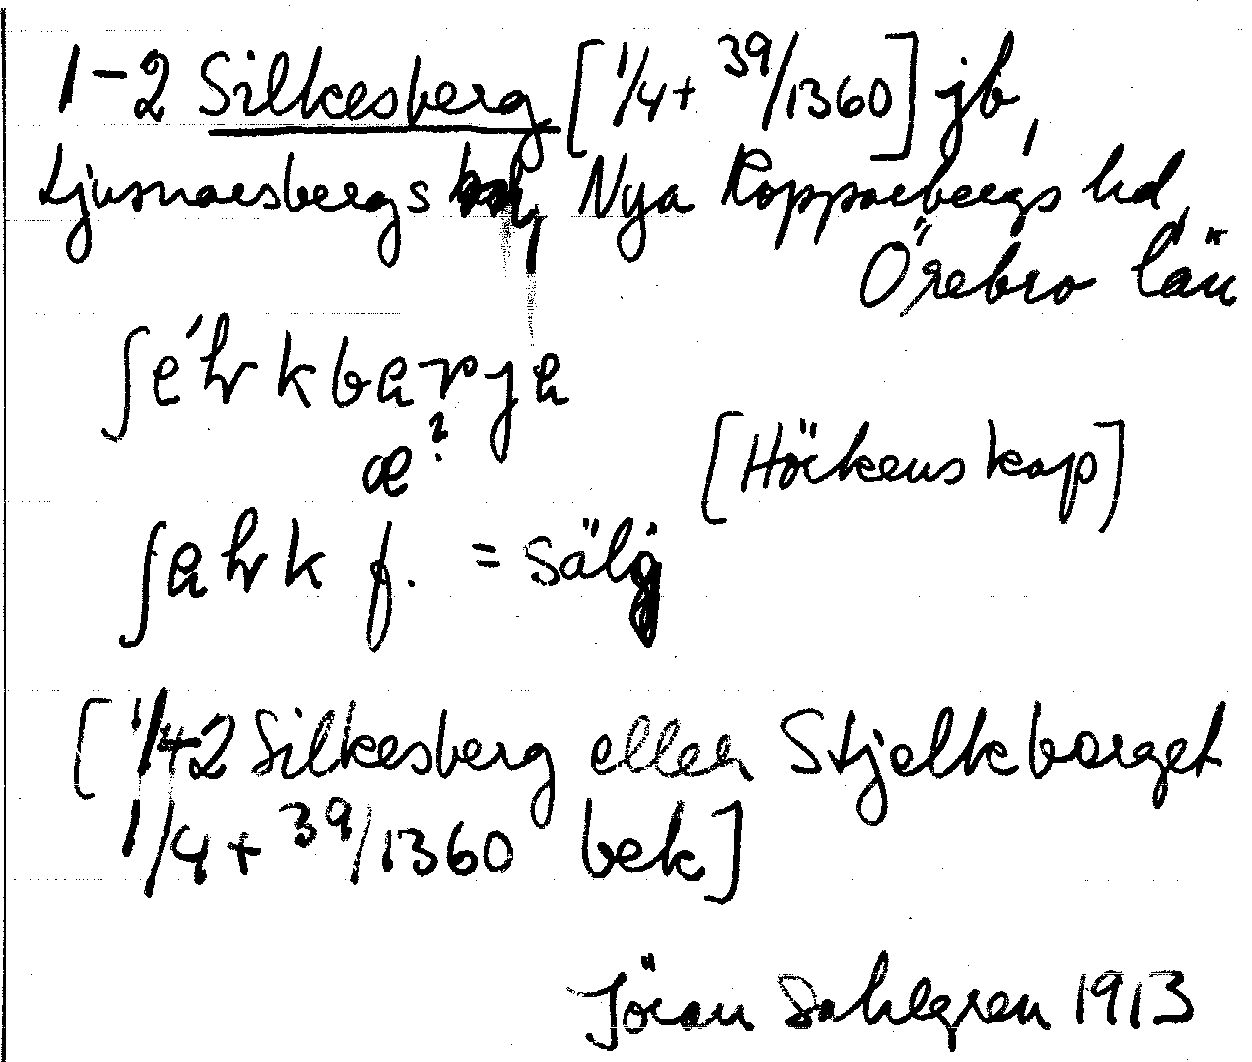 1-2 Silkesberg [1/4+ 39/1360] jb,
Ljusnarsbergs sn, Nya Kopparbergs hd,
Örebro län
ʃéɬkbarja
æ?
[Höckenskap]
ʃaɬk f. = sälg
[1/42 Silkesberg eller Stjelkberget
1/4+ 39/1360 bek]
Jöran Sahlgren 1913